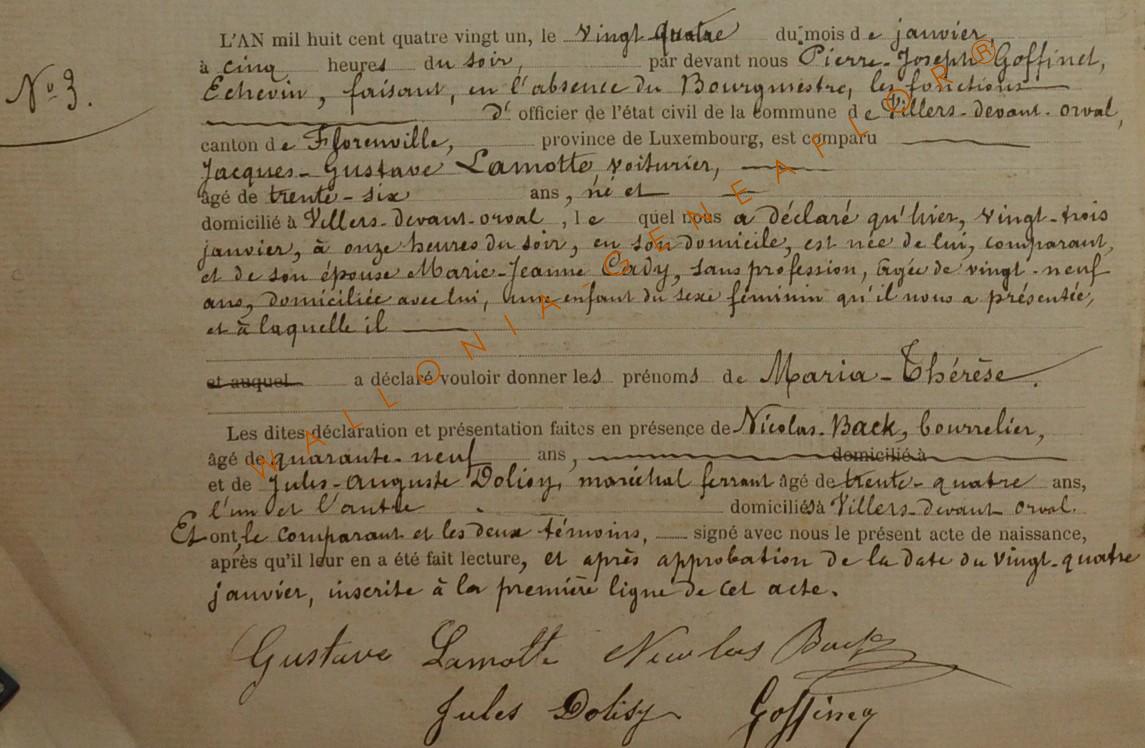 L'AN mil huit cent quatre vingt un, le vingt-quatre du mois de janvier,
à cinq heures du soir, par devant nous Pierre-Joseph Goffinet,
Nº 3.
Echevin, faisant, en l'absence du Bourgmestre, les fonctions
D' officier de l'état civil de la commune de Villers-devant-orval,
canton de Florenville, province de Luxembourg, est comparu
Jacques-Gustave Lamotte, voiturier,
âgé de trente-six ans, né et
domicilié à Villers-devant-orval, le quel nous a déclaré qu'hier, vingt-trois
janvier, à onze heures du soir, en son domicile, est née de lui, comparant,
et de son épouse Marie-Jeanne Cady, sans profession, âgée de vingt-neuf
ans, domiciliée avec lui, une enfant du sexe féminin qu'il nous a présentée,
et à laquelle il
et auquel a déclaré vouloir donner les prénoms de Maria-Thérèse.
Les dites déclaration et présentation faites en présence de Nicolas Back, bourrelier,
âgé de quarante-neuf ans, domicilié à
et de Jules-Auguste Dolisy, maréchal ferrant âgé de trente-quatre ans,
l'un et l'autre domiciliés à Villers-devant orval.
Et ont le comparant et les deux témoins, signé avec nous le présent acte de naissance,
après qu'il leur en a été fait lecture, et après approbation de la date du vingt-quatre
janvier, inscrite à la première ligne de cet acte.
Gustave Lamotte Nicolas Back
Jules Dolisy Goffinet
WALLONIA-GENEALOR®